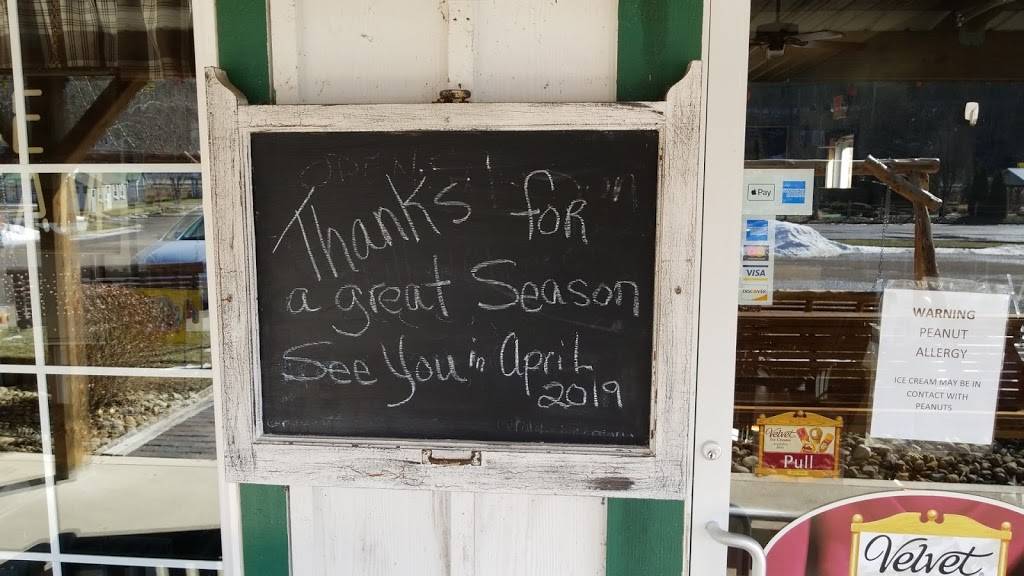 Thanks! for
a great Season
See You in April
2019
Pay
VISA
DISCOVER
WARNING
PEANUT
ALLERGY
ICE CREAM MAY BE IN
CONTACT WITH
PEANUTS
Velvet
Pull
Velvet